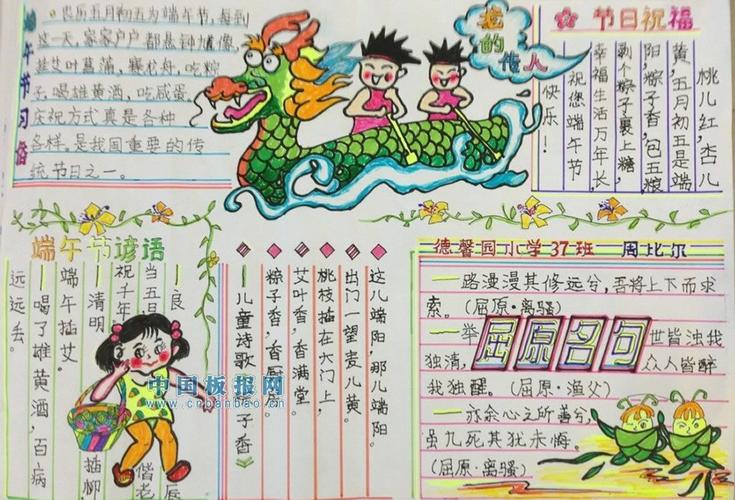 端午节习俗
农历五月初五为端午节,每到
这一天,家家户户都悬钟馗像,
挂艾叶菖蒲,赛龙舟,吃粽
子,喝雄黄酒,吃咸蛋
庆祝方式真是各种
各样。是我国重要的传
统节日之一。
龙的传人
节日祝福
桃儿红,杏儿
黄,五月初五是端
阳,粽子香,包五粮
剥个粽子裹上糖,
幸福生活万年长
祝您端午节
快乐!
端午节谚语
—良
当五日
祝千年
偕老
—清明
插柳
端午插艾。
—喝了雄黄酒,百病
远远丢。
这儿端阳,那儿端阳。
出门一望麦儿黄。
桃枝插在大门上,
艾叶香,香满堂
粽子香,香厨房。
—儿童诗歌《子香》
德馨园小学37班 周比尔
一路漫漫其修远兮,吾将上下而求
索。(屈原·离骚)
屈原名句
一举世皆浊我
独清,众人皆醉
我独醒。(屈原·渔父)
一亦余心之所善兮,
虽九死其犹未悔。
(屈原·离骚)
中国板报网
www.cnbanbao.cn